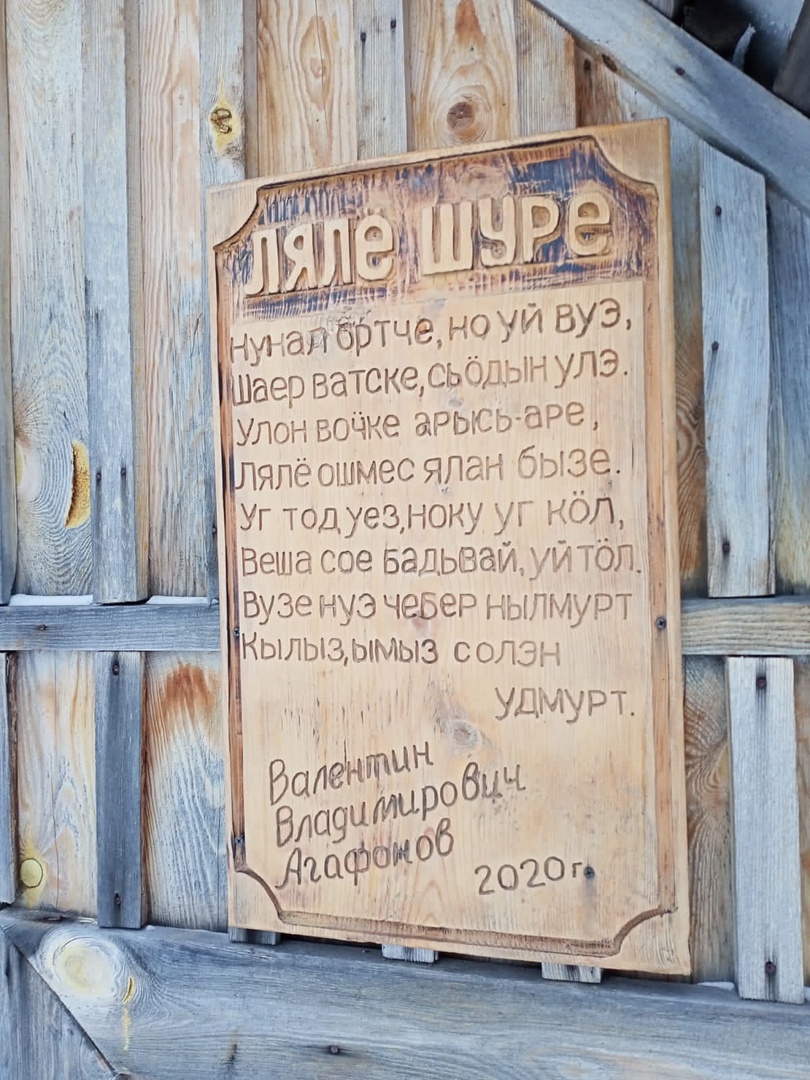 ЛЯЛЁ ШУРЕ
Нунал öртче, но уй вуэ,
Шаер ватске, сьöдын улэ.
Улон вочке арысь-аре,
Лялё ошмес ялан бызе.
Уг тод уез, ноку уг кöл,
Веша сое бадьвай, уй тöл.
Вузе нуэ чебер нылмурт
Кылыз, ымыз солэн
удмурт.
Валентин
Владимирович
Агафонов
2020 г.